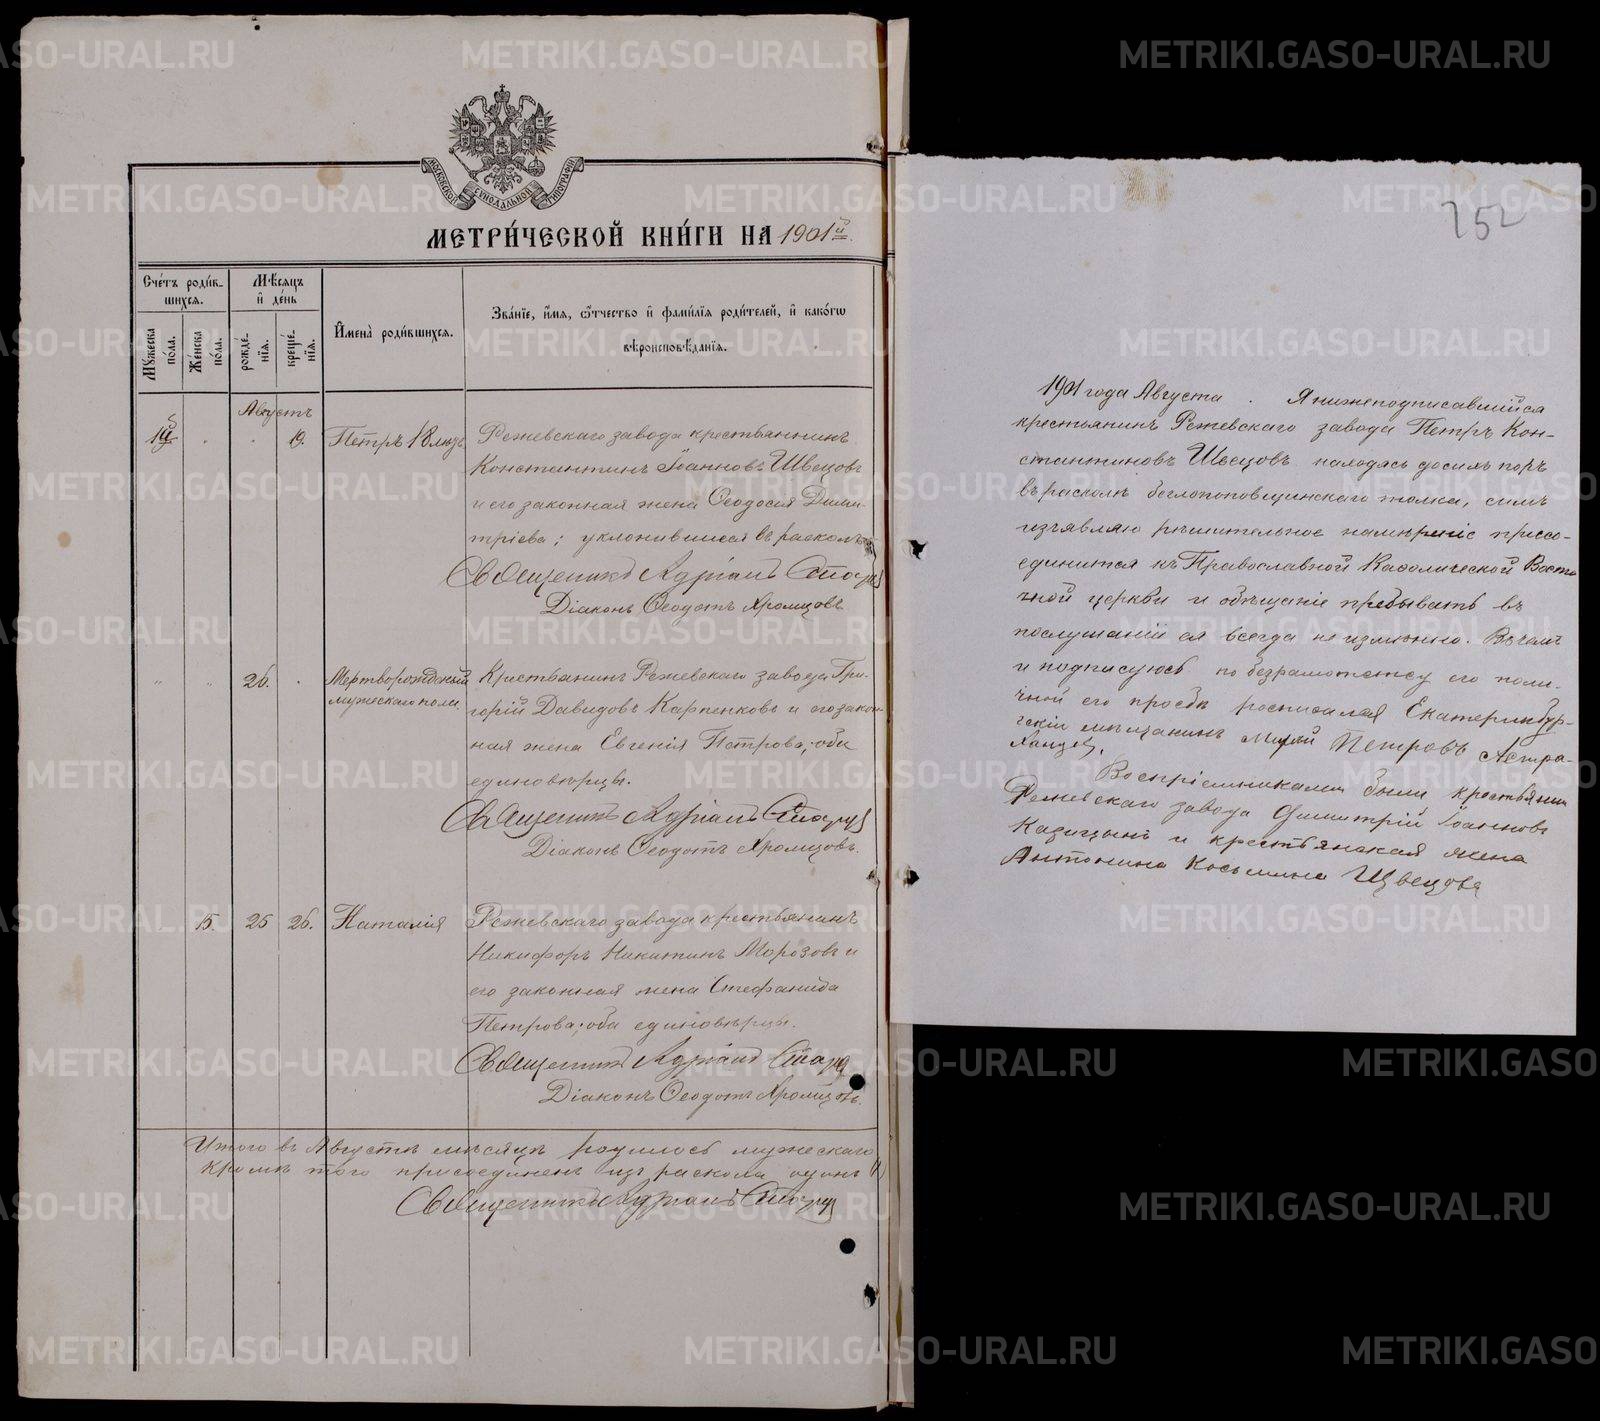 МОСКОВСКОЙ СУНОДАЛЬНОЙ ТИПОГРАФІИ
МЕТРИ́ЧЕСКОЙ КНИ́ГИ НА 1901й
Сче́тъ роди́в-
шихся.
Му́жеска по́ла.
Же́нска по́ла.
Мѣ́сяцъ
и҆ де́нь
рожде́нія.
креще́нія.
И҆мена̀ роди́вшихся.
Зва́ніе, и҆́мя, ѻ҆́тчество и҆ фами́лія роди́телей, и҆ како́гѡ
вѣроисповѣ́данія.
Августъ
19. Петръ 18 лѣтъ
Режевскаго завода крестьянинъ
Константинъ Іоанновъ Швецовъ
и его законная жена Ѳеодосія Дими-
тріева; уклонившіеся въ расколъ
Священникъ Адріанъ
Діаконъ Ѳеодотъ Хромцовъ
26. Мертворожденый
мужескаго пола.
Крестьянинъ Режевскаго завода Гри-
горій Давидовъ Карпенковъ и его закон-
ная жена Евгенія Петрова, оба
единовѣрцы.
Священникъ Адріанъ
Діаконъ Ѳеодотъ Хромцовъ.
15. 25 26. Наталія
Режевскаго завода крестьянинъ
Никифоръ Никитинъ Морозовъ и
его законная жена Стефанида
Петрова, оба единовѣрцы.
Священникъ Адріанъ
Діаконъ Ѳеодотъ Хромцовъ.
Итого въ Августѣ мѣсяцѣ родилось мужескаго
Кромѣ того присоединенъ изъ раскола одинъ (1)
Священникъ Адріанъ
752
1901 года Августа . Я нижеподписавшійся
крестьянинъ Режевскаго завода Петръ Кон-
стантиновъ Швецовъ находясь до сихъ поръ
въ расколѣ бѣглопоповщинскаго толка, симъ
изъявляю рѣшительное намѣреніе присо-
единится къ Православной Каѳолической Восто
чной церкви и обѣщаніе пребывать въ
послушаніи ея всегда неизмѣнно. Въ чемъ
и подписуюсь по безграмотству его по ли-
чной его просьбѣ росписался Екатеринбур-
гскій мѣщанинъ Петровъ Астра-
ханцевъ.
Воспріемниками были крестьянинъ
Режевскаго завода Димитрій Іоанновъ
и крестьянская жена
Антонина Косьмина Швецова
METRIKI.GASO-URAL.RU